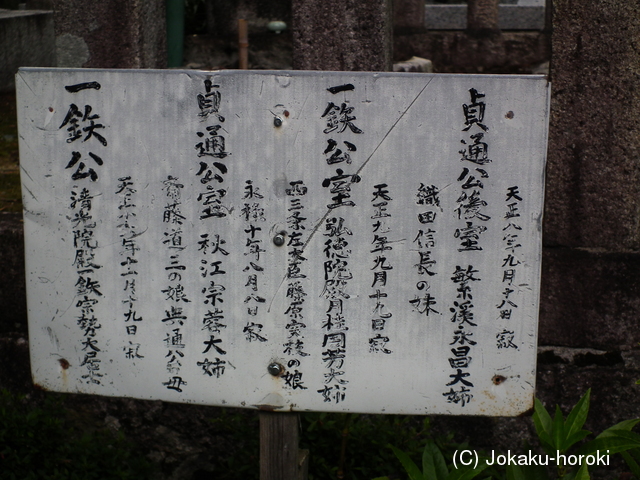 天正八年九月十八日 寂
貞通公後室 繁溪永昌大姉
織田信長の妹
天正九年九月十九日寂
一鉄公室 弘徳院殿月桂周芳大姉
西三条左大臣藤原実枝の娘
永禄十年八月八日 寂
貞通公室 秋江宗蓉大姉
斎藤道三の娘典通公母
天正十六年十一月十九日 寂
一鉄公 清光院殿一鉄宗勢大居士
(C) Jokaku-horoki